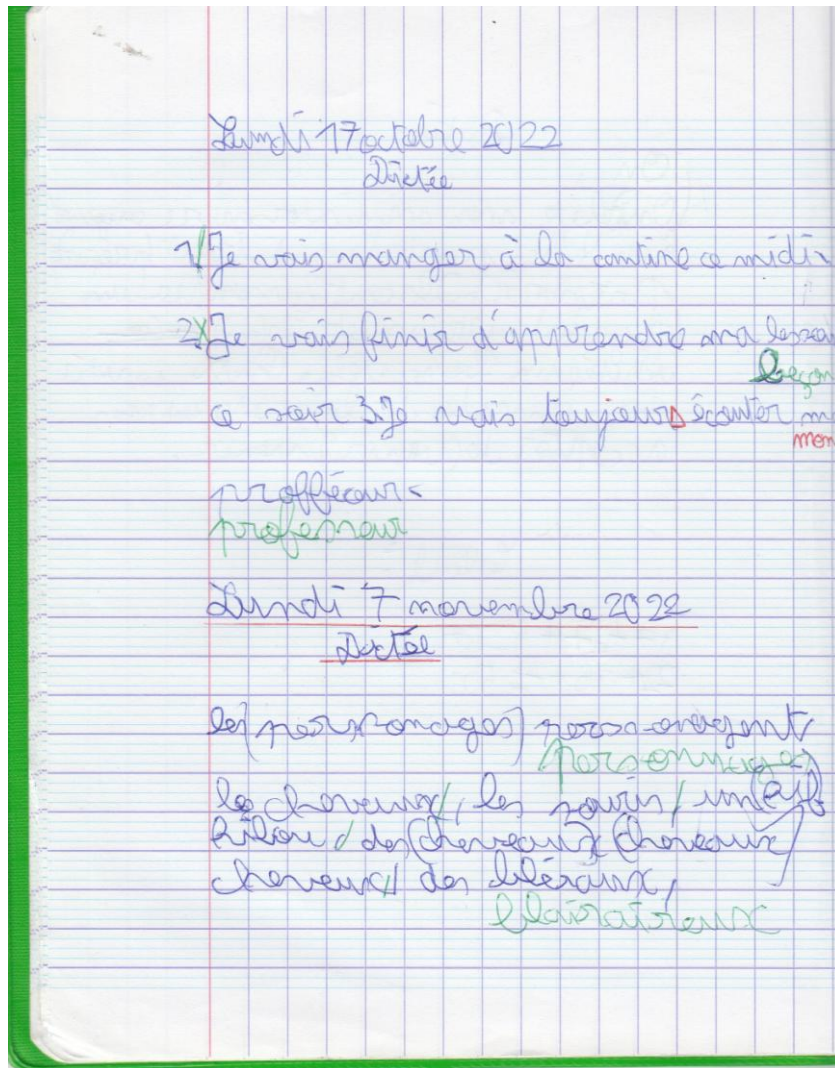 Lundi 17 octobre 2022
Dictée
1/ Je vais manger à la cantine ce midi
2 Je vais finir d'apprendre ma
leçon
ce soir 3. Je vais toujours écouter m
mon
profféceur.
professeur
Lundi 7 novembre 2022
Dictée
les (personages)
personnages
les cheveux, les souris / un
hibou / des
cheveux / des